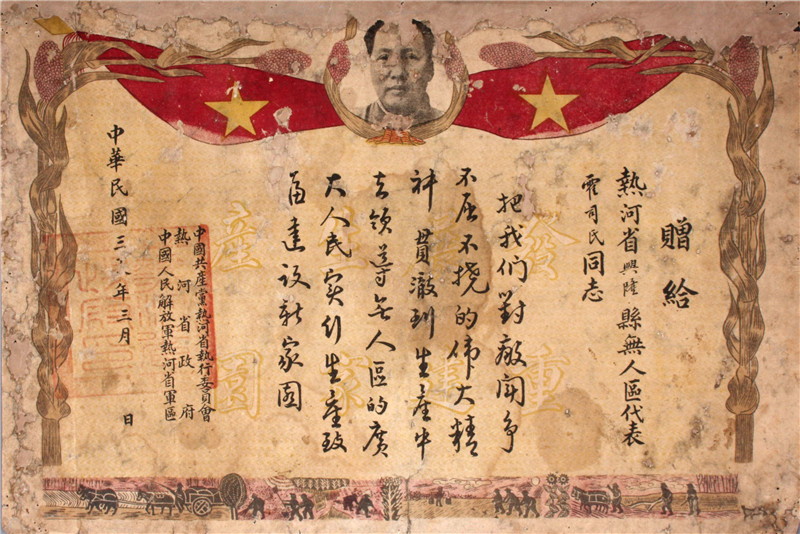 贈給
熱河省興隆縣無人區代表
霍司民同志
把我们對敵鬪争
不屈不挠的伟大精
神貫澈到生産中
去領導無人區的廣
大人民实行生産致
富建设新家園
中國共産黨熱河省執行委員會
熱河省政府
中國人民解放軍熱河省軍區
中華民國三八年三月 日
發 生産
重建家園